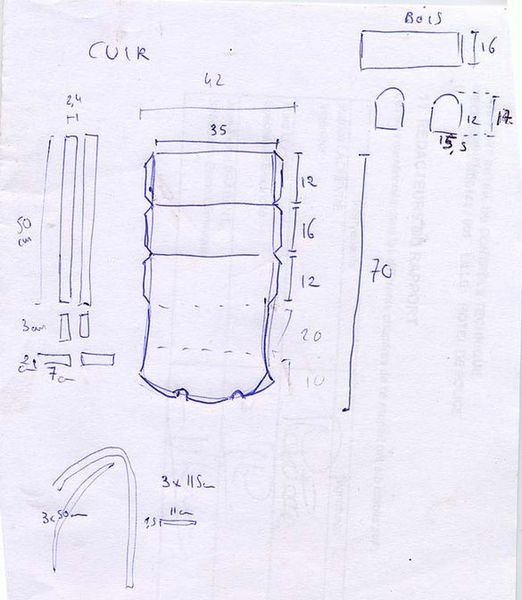 BOIS
CUIR
16
42
2,4
12
35
12
50 cm
16
70
12
3cm
20
2 cm
7cm
10
3 x 115cm
3 x 50cm
11cm
1,5